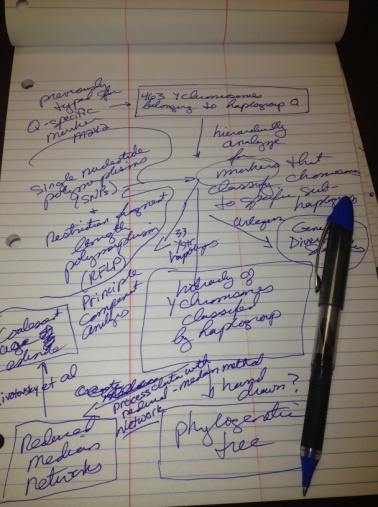 previously
typed for
Q-specific
marker
M242
463 Y chromosomes
belonging to haplogroup Q
hierarchically
analyze
for
markers that
classify chromosomes
to specific sub-
haplogroups
Single nucleotide
polymorphisms
(SNPs)
+
Restriction fragment
length
polymorphism
(RFLP)
33
Principle
component
analysis
Diversity
Y chromosomes
classified
by haplogroup
Coalescent
age
et al
process data with
reduced-median method
network
hand
drawn?
Reduced
Median
networks
phylogenetic
tree